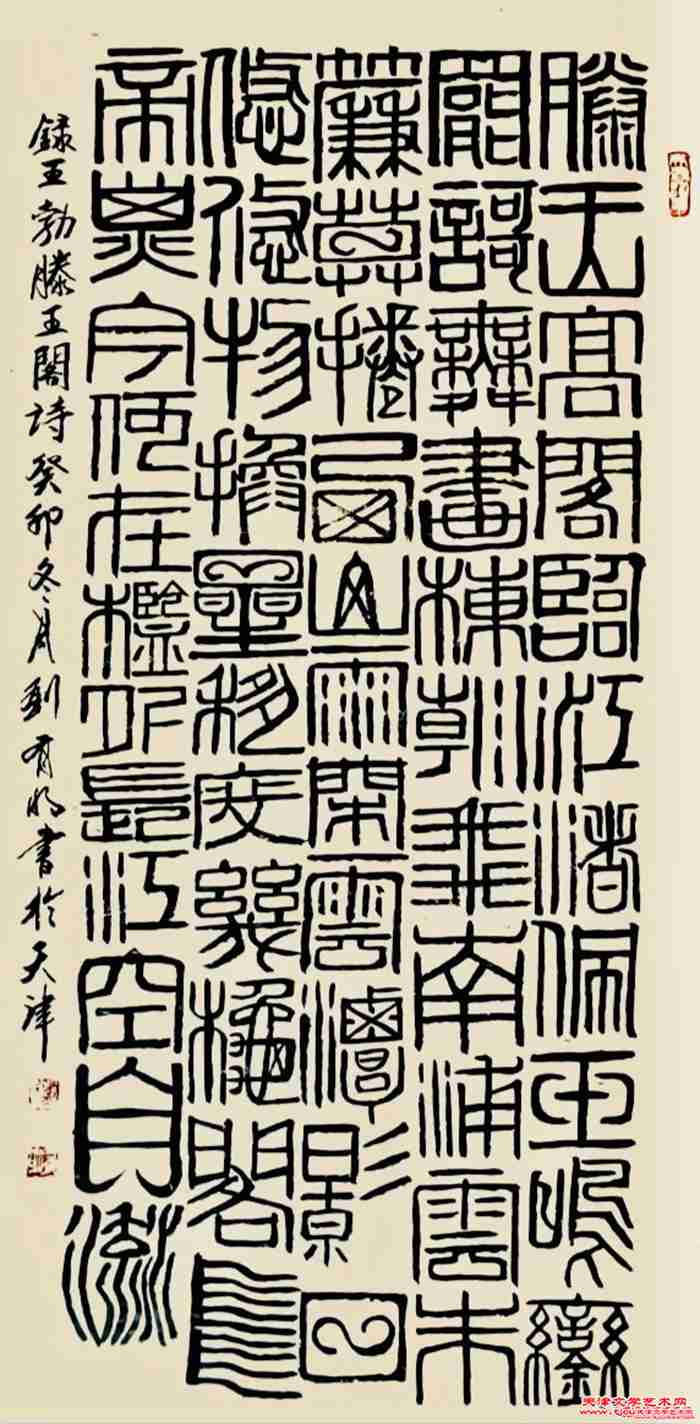 滕王高閣臨江渚佩玉鳴鑾
罷歌舞畫棟朝飛南浦雲朱
簾暮捲西山雨閑雲潭影日
悠悠物換星移度幾秋閣中
帝子今何在檻外長江空自流
録王勃滕王閣詩癸卯冬月劉有明書於天津
天津文学艺术网